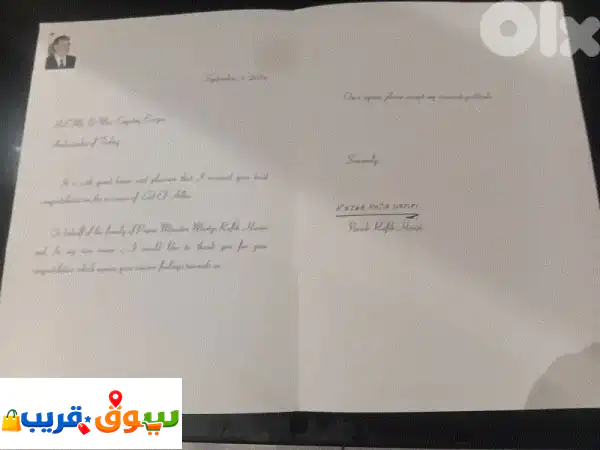 September,
H.E Mr. & Mrs. Cagatay Erciyes
Ambassador of Turkey
It is with great honor and pleasure that I received your kind
congratulations on the occasion of Eid El Adha.
On behalf of the family of Prime Minister Martyr Rafik Hariri
and, In my own name, I would like to thank you for your
congratulation which express your sincere feelings towards us.
Once again, please accept my sincerest gratitude.
Sincerely,
NAZEK RAFIK HARIRI
Nazek Rafik Hariri
OLX
سوق قريب